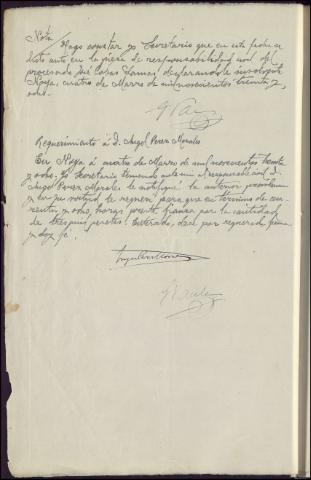 Nota
Hago constar yo Secretario que en esta fecha se
dictó auto en la pieza de responsabilidad civil del
procesado José declarandole insolvente
Noya, cuatro de Marzo de mil novecientos treinta y
ocho.
Requerimiento á D. Angel Perez Morales
En Noya á cuatro de Marzo de mil novecientos treinta
y ocho; yo Secretario teniendo ante mi al responsable civil D.
Angel Perez Morales le notifiqué la anterior providencia
y en su virtud le requerí para que en termino de cua-
renta y ocho horas preste fianza por la cantidad
de pesetas. Enterado, dase por requerido firma
y doy fe.